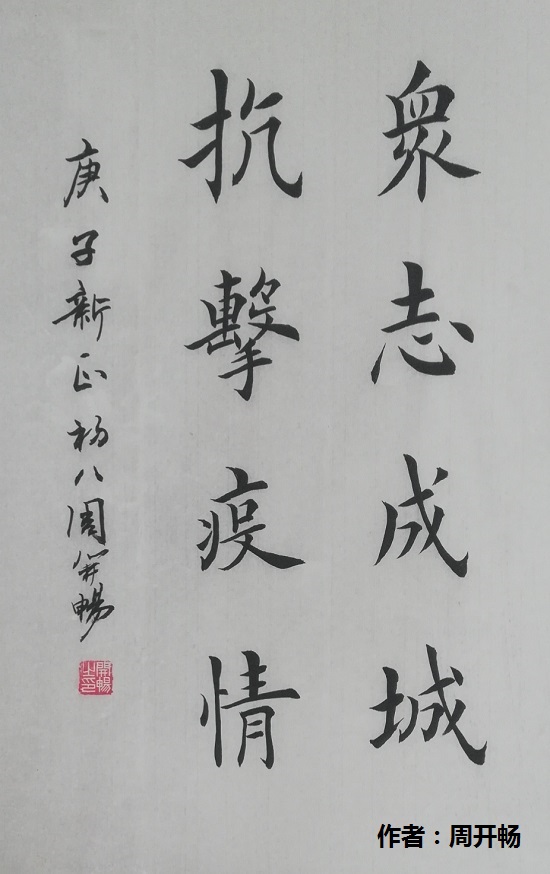 衆志成城
抗擊疫情
庚子新正初八周開暢
開暢之印
作者：周开畅